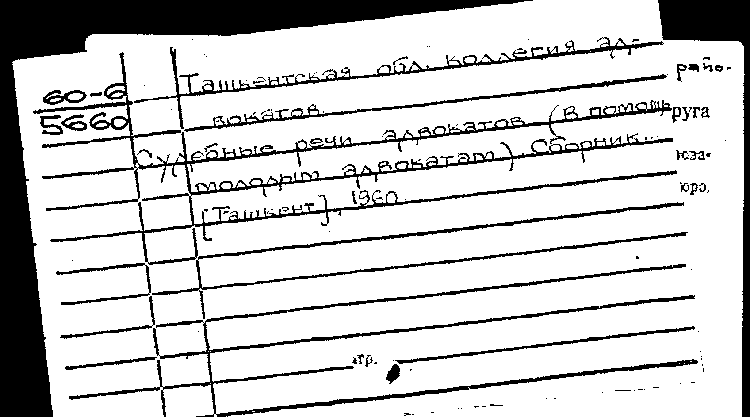 60-6
5660
Ташкентская обл. коллегия ад-
вокатов.
Судебные речи адвокатов (В помощь
молодым адвокатам). Сборник...
[Ташкент], 1960
райо-
руга
юза-
юро,
стр.